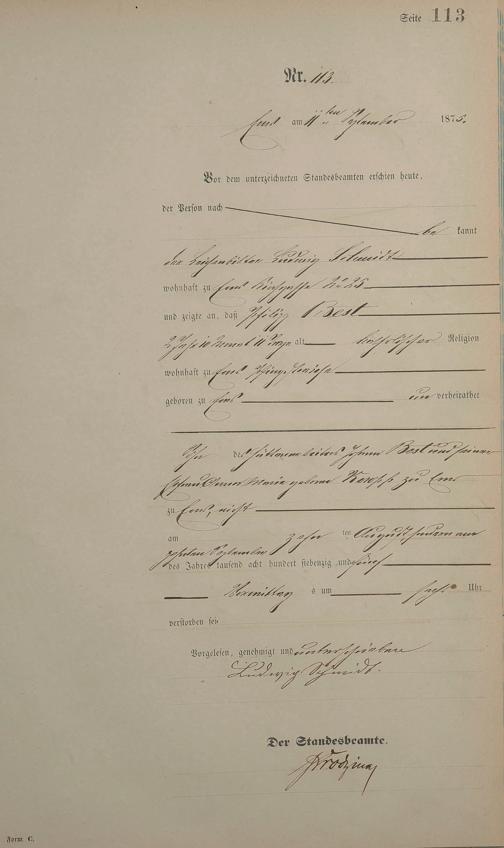 Seite 113
Nr. 113.
Ems am 11ten September 1875.
Vor dem unterzeichneten Standesbeamten erschien heute,
der Person nach
be kannt
der Leichenbitter Ludwig Schmidt
wohnhaft zu Ems
und zeigte an, daß Philipp Best
2 Jahr 10 Monat 11 Tage alt katholischer Religion
wohnhaft zu Ems
geboren zu Ems un verheirathet
Sohn des Hüttenarbeiters Johann Best und seiner
Ehefrau Anna Maria geborene zu Ems
zu Ems, nicht
am zehn ten August sondern am
zehnten September
des Jahres tausend acht hundert siebenzig und fünf
Vormittag s um sechs Uhr
verstorben sei
Vorgelesen, genehmigt und unterschrieben
Ludwig Schmidt.
Der Standesbeamte.
Form. C.